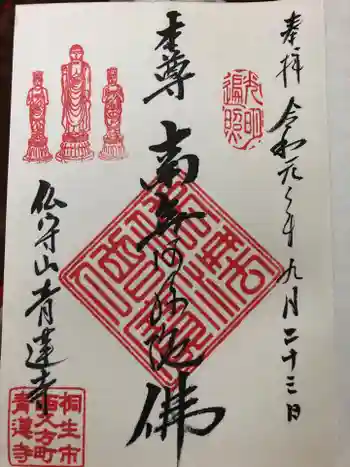 奉拝 令和元年九月二十三日
光明
遍照
本尊
南無阿弥陀佛
仏守山 青蓮寺
桐生市
西久方町
青蓮寺